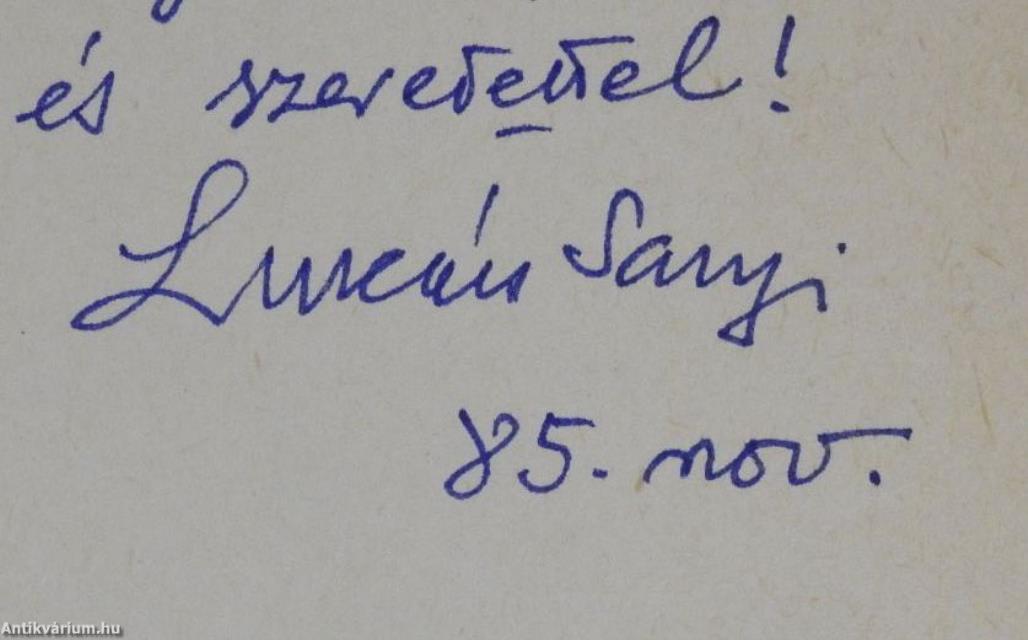 és szeretettel!
Lukán Sanyi
85. nov.
Antikvárium.hu